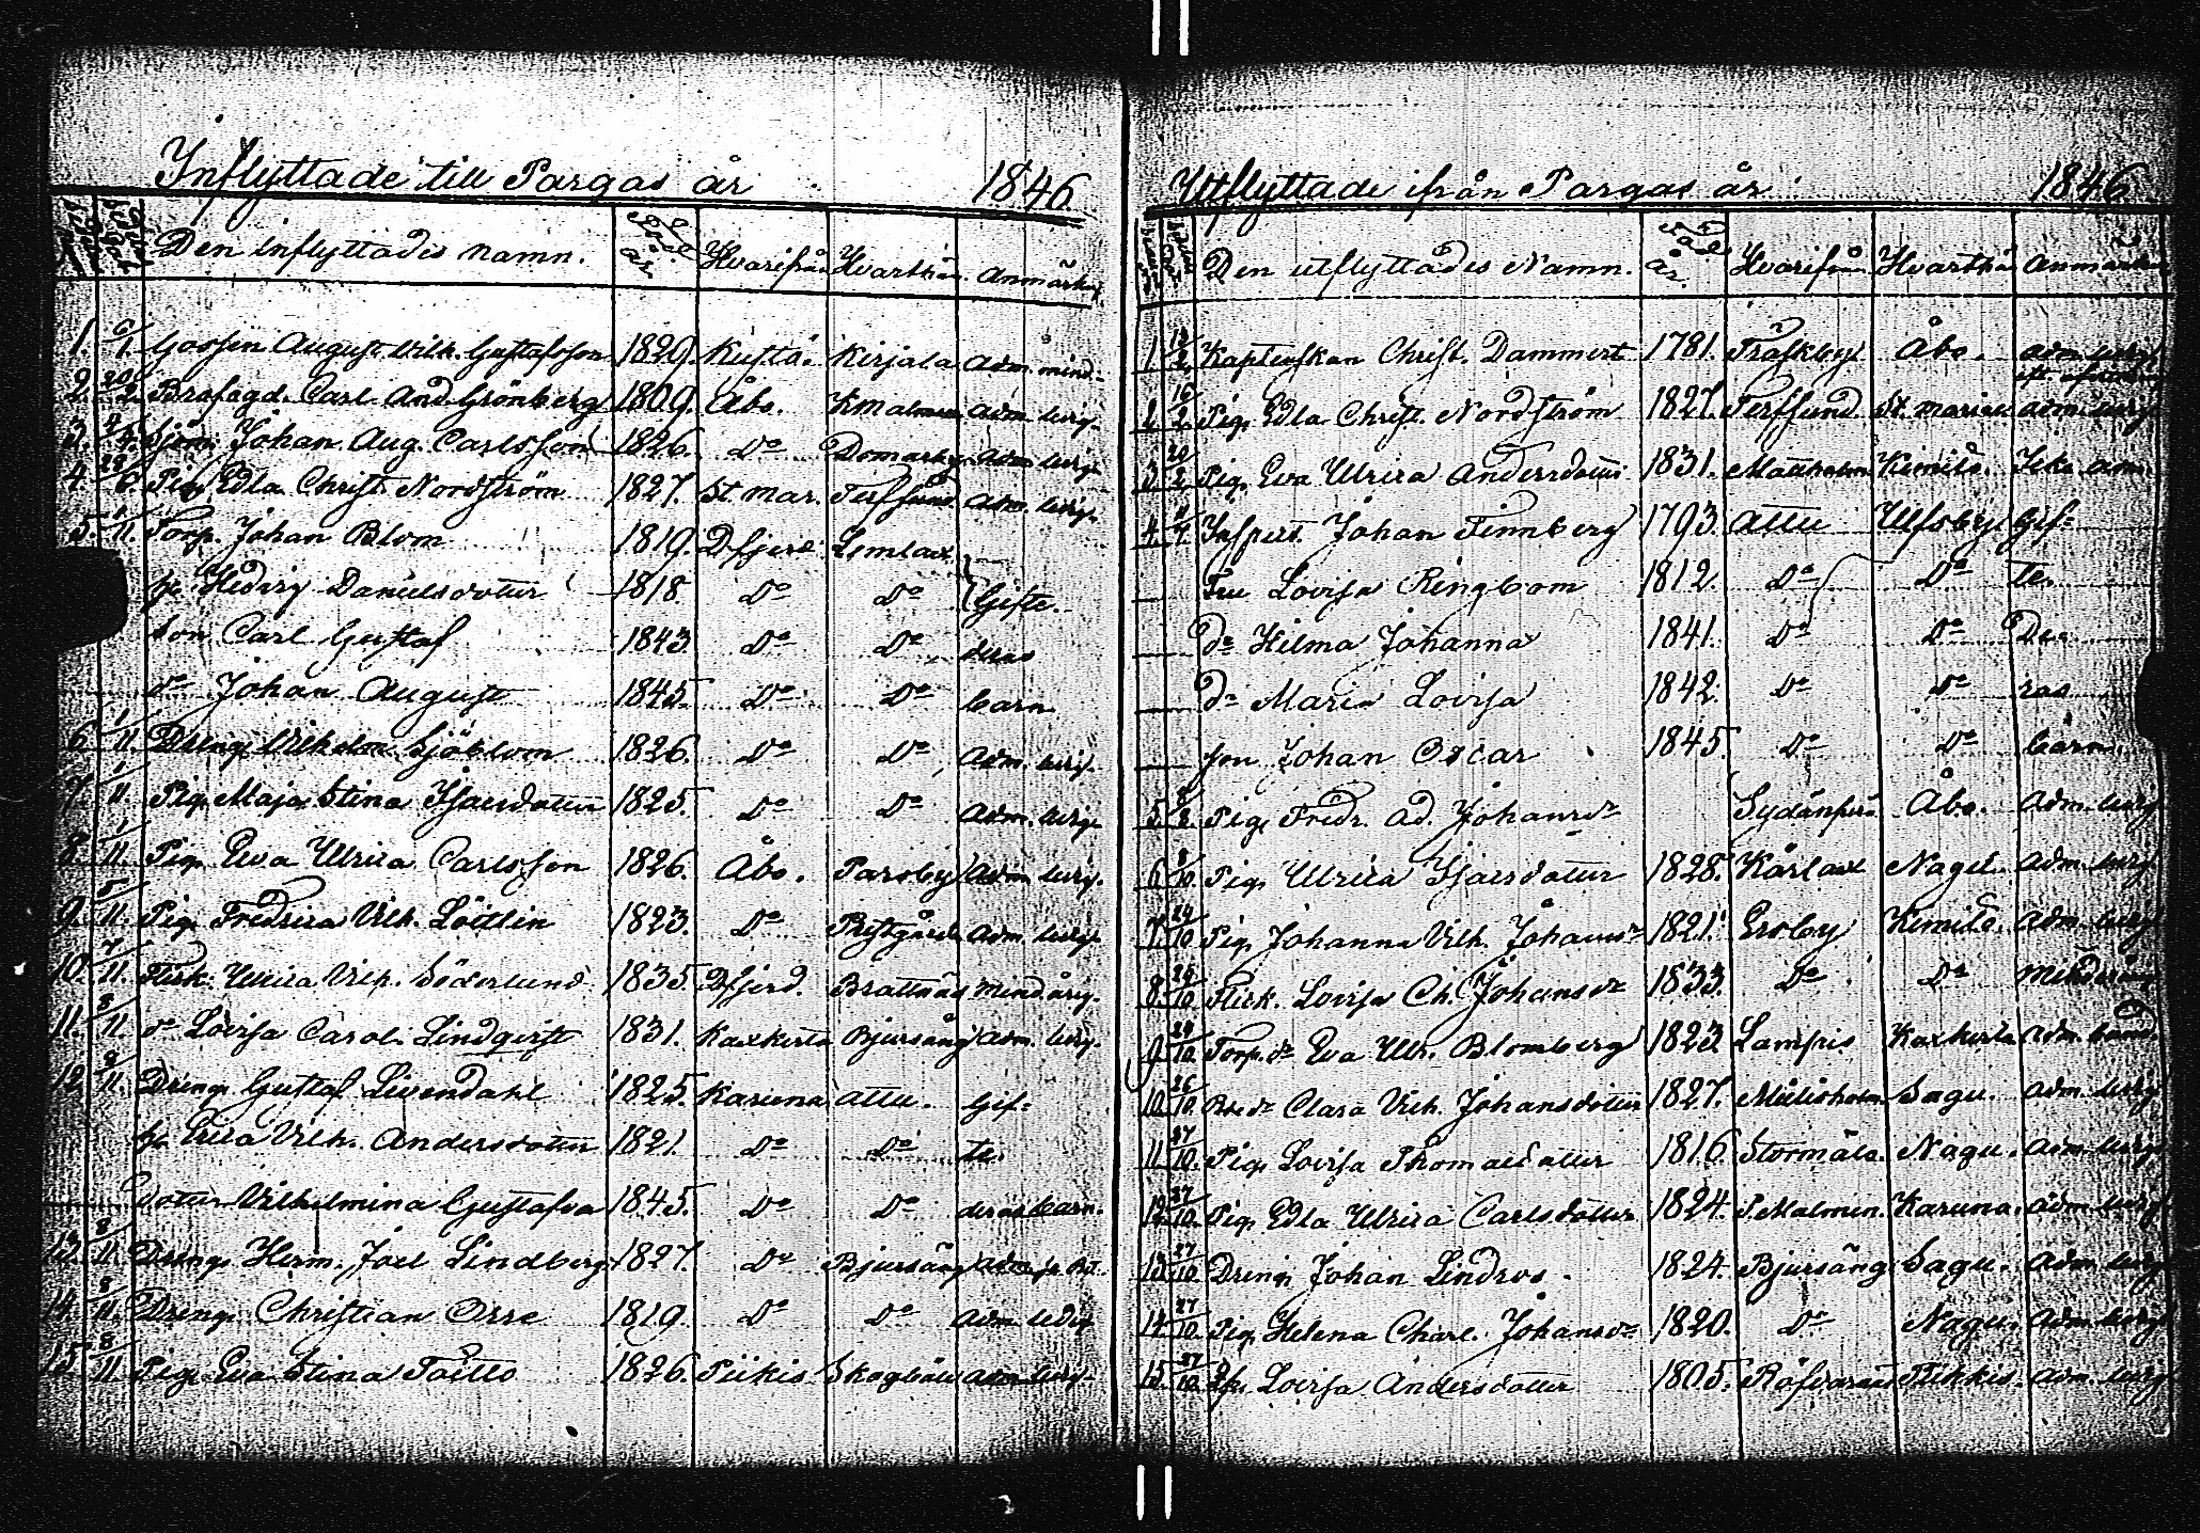 Inflyttade till Pargas år 1846.
Den inflyttades namn. Född år. Hvarifrån Hvarthän. Anmärkn.
1. 6/1 Gossen August Vilh. Gustafsson 1829. Kustö. Kirjala Adm. mind.
2. 20/2 Carl And. Grönberg 1809. Åbo. Kmalmen Adm. ledig.
3. Sjöm. Johan Aug. Carlsson 1826. Do Domarby Adm. ledig.
4. 28/6. Pig. Edla Christ. Nordström 1827. St. Mar. Terfsund Adm. ledig.
5. 1/11. Torp. Johan Blom 1819. Dfjerd. Lemlax
h. Hedvig Danielsdotter 1818. Do Do Gifte.
son Carl Gustaf 1843. Do Do deras
do Johan August 1845. Do Do barn
6. 1/11. Dreng. Vilhelm Sjöblom 1826. Do Do Adm. ledig.
7. 1/11. Pig. Maja Stina Isacsdotter 1825. Do Do Adm. ledig.
8. 1/11. Pig. Eva Ulrica Carlsson 1826. Åbo. Parsby Adm. ledig.
9. 5/11. Pig. Fredrica Vilh. Löttlin 1823. Do Prestgården Adm. ledig.
10. 7/11. Flick. Ulrica Vilh. Söderlund 1835. Dfjerd. Brattnäs Mind.årig.
11. 8/11 do Lovisa Carol. Lindqvist 1831. Kaxkerta Bjursäng Adm. ledig.
12. 8/11. Dreng. Gustaf Livendahl 1825. Karuna Attu. Gif-
h. Erica Vilh. Andersdotter 1821. Do Do te.
dotter Vilhelmina Gustafva 1845. Do Do deras barn.
13. 8/11. Dreng. Herm. Joel Lindberg 1827. Do Bjursäng
14. 8/11. Dreng. Christian Orre 1819. Do Do Adm. ledig
15. 8/11. Pig. Eva Stina Toitto 1826. Piikis Skogböle Adm. ledig.
Utflyttade ifrån Pargas år 1846
Den utflyttades Namn. Född år. Hvarifrån Hvarthän Anmärkn
1. Kaptenskan Christ. Dammert 1781. Träskby Åbo. Adm. ledig.
2. 16/2. Pig. Edla Christ. Nordström 1827. Terfsund St. Mariae Adm. ledig.
3. 20/2. Pig. Eva Ulrica Andersdotter 1831. Mattholm Kimito. Icke adm.
4. Inspect. Johan Finnberg 1793. Attu Ulfsby Gif-
Fru Lovisa Ringbom 1812. Do Do te.
do Hilma Johanna 1841. Do Do De-
do Maria Lovisa 1842. Do Do ras
son Johan Oscar 1845. Do Do barn.
5. Pig. Fredr. Ad. Johansdr Sydänperä Åbo. Adm. ledig
6. 8/10. Pig. Ulrica Isacsdotter 1828. Kårlax Nagu. Adm. ledig.
7. 24/10 Pig. Johanna Vilh. Johansdr 1821. Ersby Kimito. Adm. ledig
8. 24/10. Flick. Lovisa Ch. Johansdr 1833. Do Do Minderårig
9. 24/10. Torp. dr Eva Ulr. Blomberg 1823. Lampis Kaxkerta Adm.
10. 26/10. Clara Vilh. Johansdotter 1827. Mielisholm Sagu. Adm. ledig
11. 27/10. Pig. Lovisa Thomasdotter 1816. Stormälö. Nagu. Adm. ledig
12. 27/10. Pig. Edla Ulrica Carlsdotter 1824. P. Malmen. Karuna. Adm. ledig
13. 27/10. Dreng. Johan Lindros. 1824. Bjursäng Sagu. Adm. ledig
14. 27/10. Pig. Helena Charl. Johansdr 1820. Do Nagu. Adm. ledig
15. 27/10. Lovisa Andersdotter 1805. Räfvarnäs Pikkis. Adm. ledig